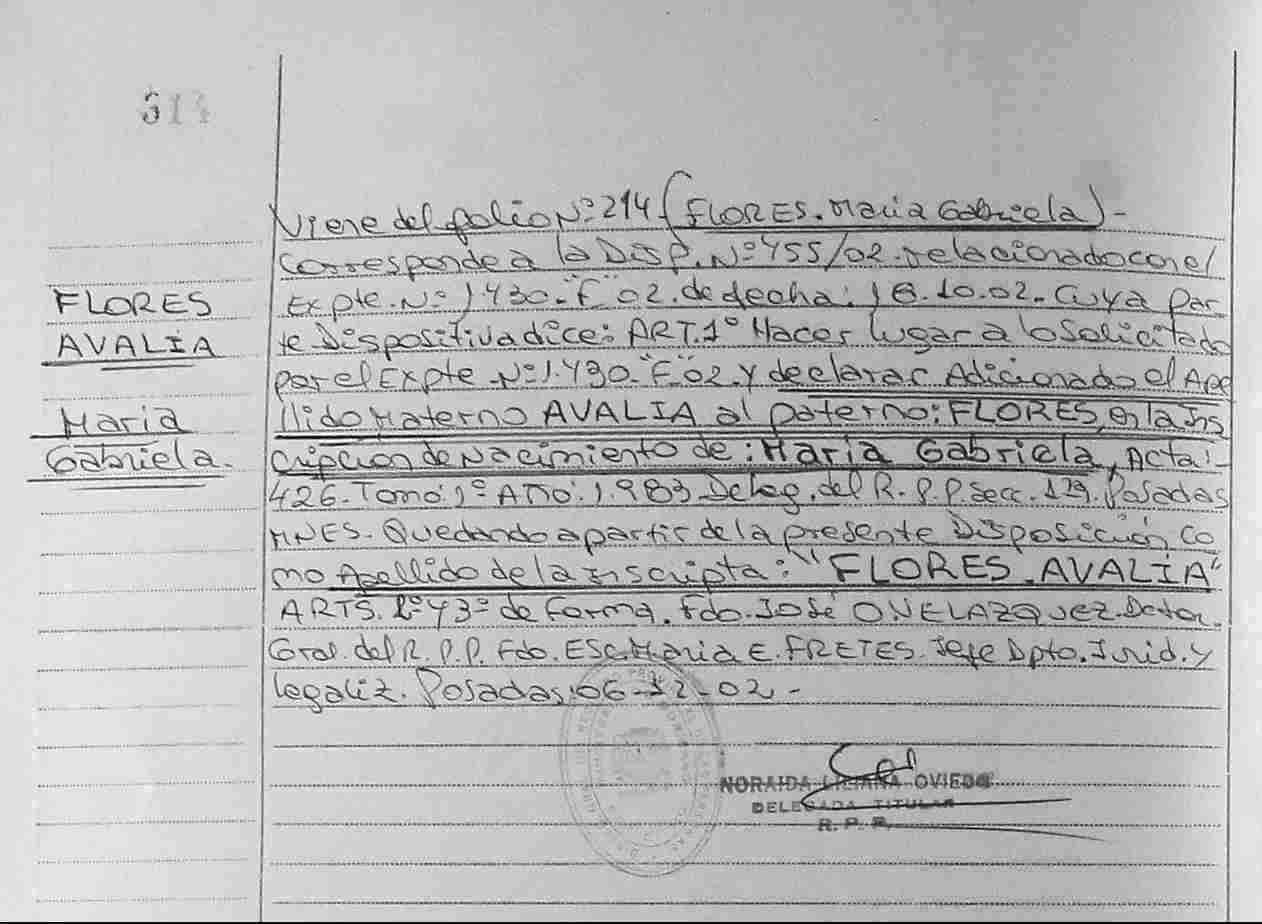 314
FLORES
AVALIA
Maria
Gabriela.
Viene del folio Nº 214 (FLORES. Maria Gabriela) -
Corresponde a la Disp. Nº 455/02. relacionado con el
Expte. Nº 1.430-"F" 02. de fecha: 18.10.02. Cuya par-
te Dispositiva dice: ART. 1º Hacer lugar a lo solicitado
por el Expte. Nº 1.430-"F" 02. Y declarar Adicionado el Ape
llido Materno AVALIA al paterno: FLORES, en la Ins
cripcion de Nacimiento de: Maria Gabriela, Acta:
426. Tomo: 1º Año: 1.983. Deleg. del R.P.P. Secc. Posadas
MNES. Quedando a partir de la presente Disposición, co
mo Apellido de la inscripta: "FLORES AVALIA"
ARTS. 2º Y 3º de Forma. Fdo. José O. VELAZQUEZ. Dctor.
Gral. del R.P.P. Fdo. ESC. Maria E. FRETES. Jefe Dpto. Jurid. y
legaliz. Posadas: 06-12-02-
NORAIDA LILIANA OVIEDO
DELEGADA TITULAR
R. P. P.